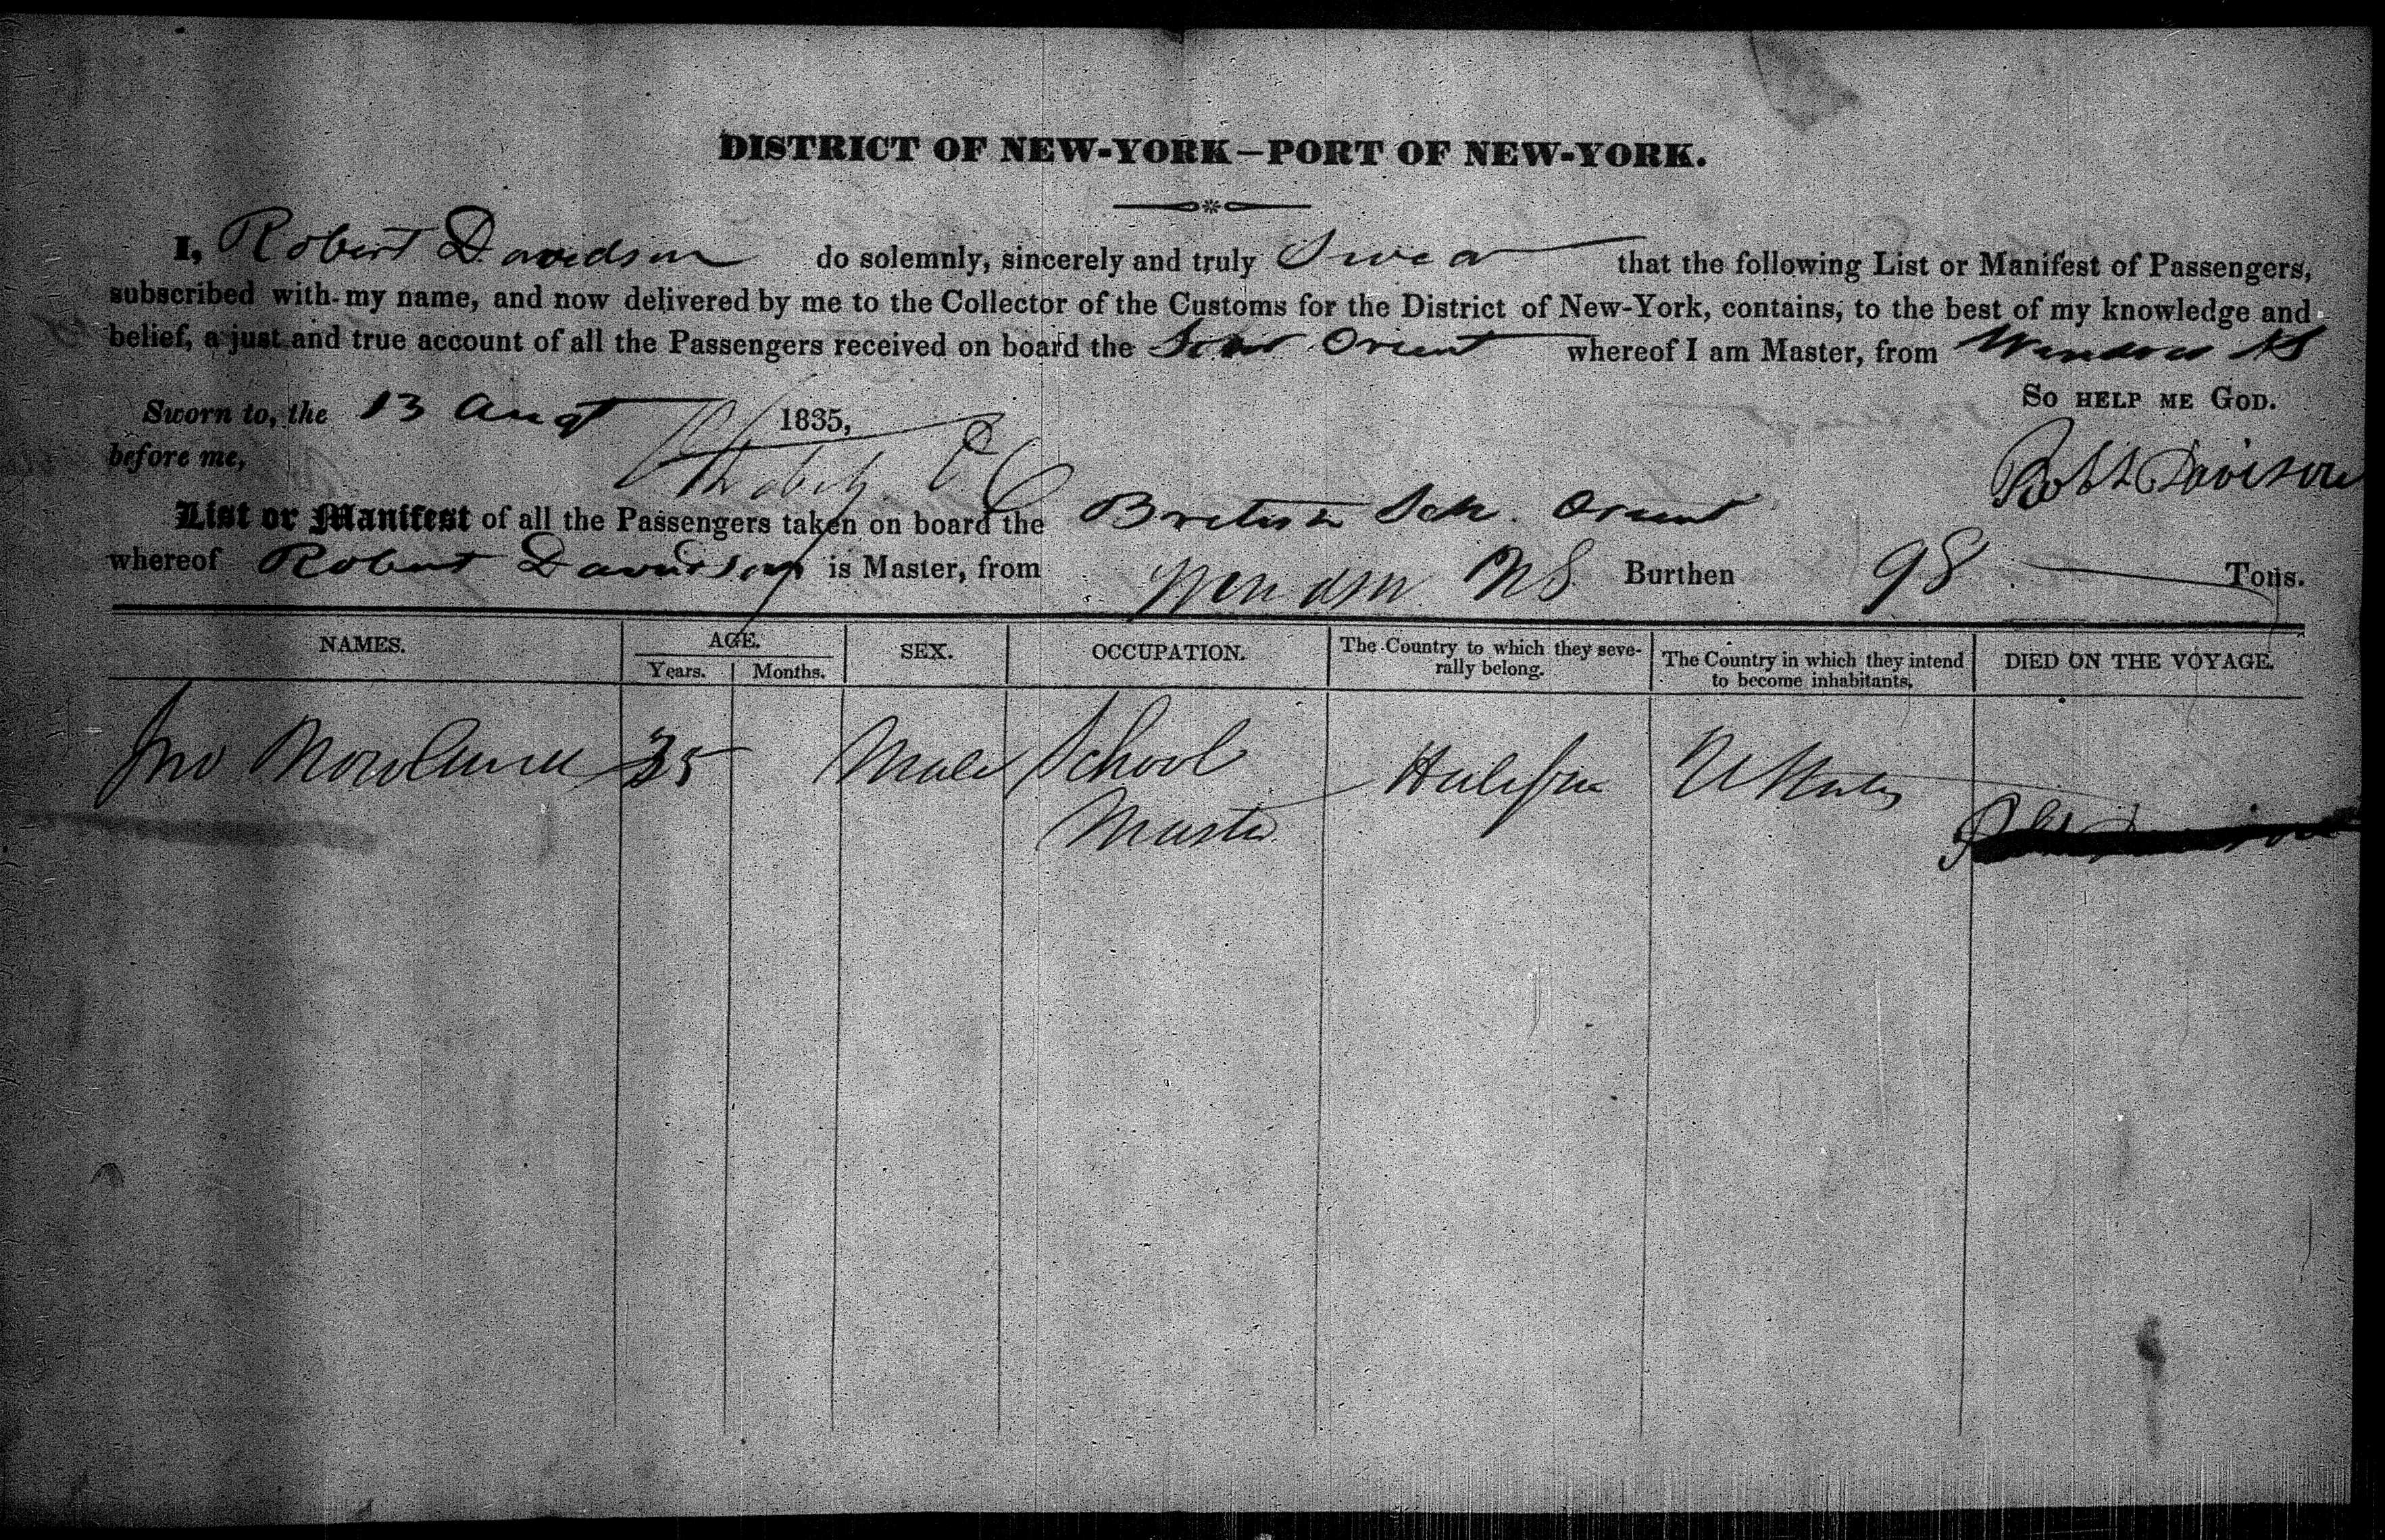 DISTRICT OF NEW-YORK—PORT OF NEW-YORK.
I, Robert Davidson do solemnly, sincerely and truly Swear that the following List or Manifest of Passengers,
subscribed with my name, and now delivered by me to the Collector of the Customs for the District of New-York, contains, to the best of my knowledge and
belief, a just and true account of all the Passengers received on board the Schr Orient whereof I am Master, from Windsor NS
So help me God.
Sworn to, the 13 Augt 1835,
before me,
Robt Davison
List or Manifest of all the Passengers taken on board the British Sch. Orient
whereof Robert Davidson is Master, from Windsor NS Burthen 98 Tons.
NAMES. AGE. SEX. OCCUPATION. The Country to which they seve-
rally belong. The Country in which they intend
to become inhabitants. DIED ON THE VOYAGE.
Years. Months.
Jno 35 Male School Halifax U States
Master